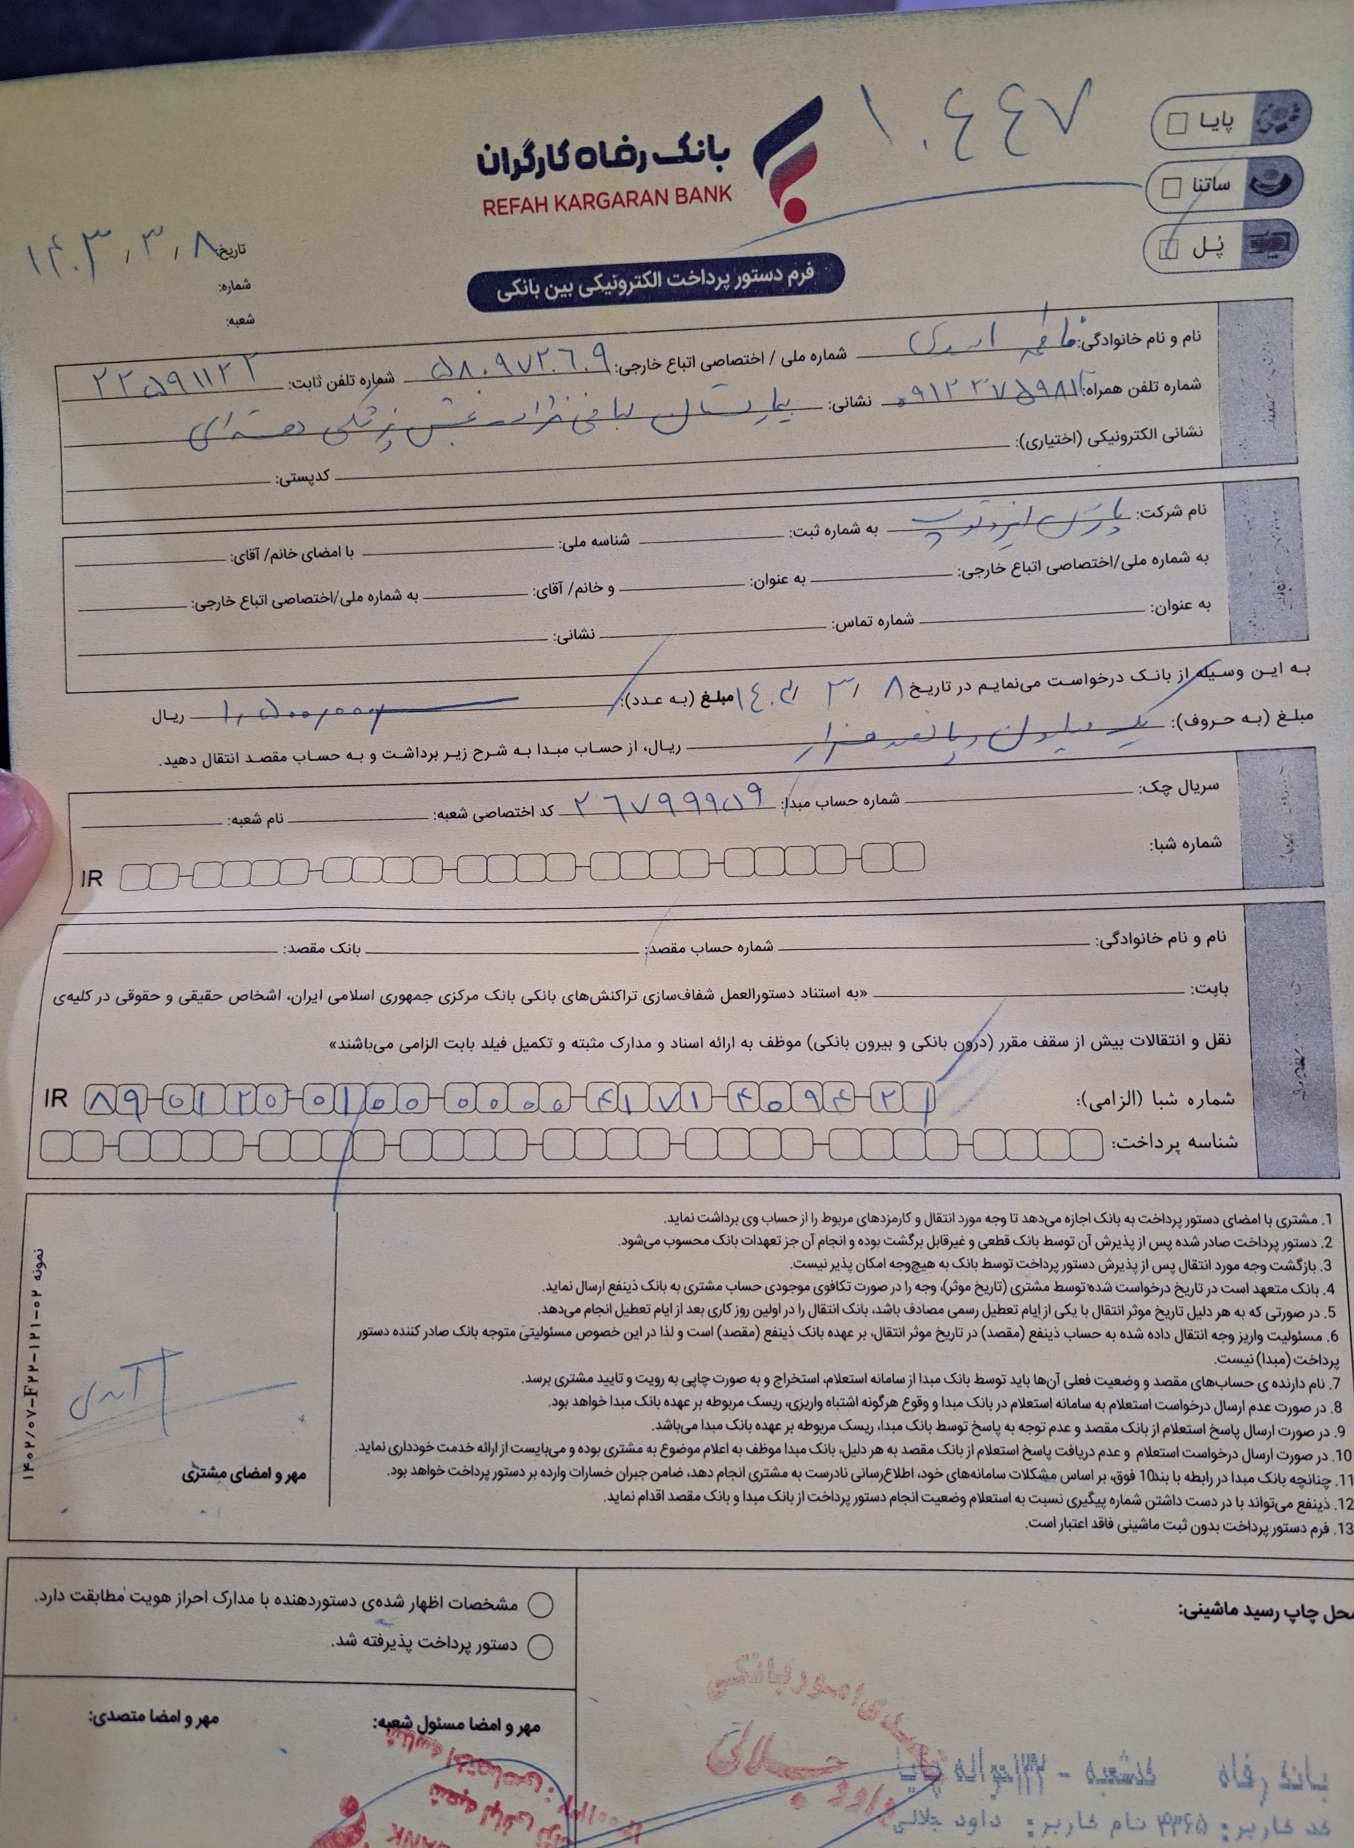 ۱.۴۴۷
پایا
ساتنا
پُل
بانک رفاه کارگران
REFAH KARGARAN BANK
تاریخ: ۱۴۰۳/۳/۸
شماره:
شعبه:
فرم دستور پرداخت الکترونیکی بین بانکی
نام و نام خانوادگی: فاطمه اسدی شماره ملی / اختصاصی اتباع خارجی: ۵۸۰۹۷۲۰۶۰۹ شماره تلفن ثابت: ۲۲۵۹۱۱۲۲
شماره تلفن همراه: نشانی: بیمارستان لبافی نژاد - بخش پزشکی هسته‌ای
نشانی الکترونیکی (اختیاری):
کدپستی:
نام شرکت: پارس ایزوتوپ به شماره ثبت: شناسه ملی: با امضای خانم/ آقای:
به شماره ملی/اختصاصی اتباع خارجی: به عنوان: و خانم/ آقای: به شماره ملی/اختصاصی اتباع خارجی:
به عنوان: شماره تماس: نشانی:
به این وسیله از بانک درخواست می‌نمایم در تاریخ ۱۴۰۳/۳/۸ مبلغ (به عدد): ۱,۵۰۰,۰۰۰ ریال
مبلغ (به حروف): یک میلیون و پانصد هزار ریال، از حساب مبدا به شرح زیر برداشت و به حساب مقصد انتقال دهید.
سریال چک: شماره حساب مبدا: ۲۶۷۹۹۹۵۱۹ کد اختصاصی شعبه: نام شعبه:
شماره شبا:
IR
نام و نام خانوادگی: شماره حساب مقصد: بانک مقصد:
بابت: «به استناد دستورالعمل شفاف‌سازی تراکنش‌های بانکی بانک مرکزی جمهوری اسلامی ایران، اشخاص حقیقی و حقوقی در کلیه‌ی
نقل و انتقالات بیش از سقف مقرر (درون بانکی و بیرون بانکی) موظف به ارائه اسناد و مدارک مثبته و تکمیل فیلد بابت الزامی می‌باشند»
شماره شبا (الزامی): IR ۸۹ ۰۱۲۰ ۰۱۰۰ ۰۰۰۰ ۴۱۷۱ ۴۰۹۴ ۲۱
شناسه پرداخت:
1. مشتری با امضای دستور پرداخت به بانک اجازه می‌دهد تا وجه مورد انتقال و کارمزدهای مربوط را از حساب وی برداشت نماید.
2. دستور پرداخت صادر شده پس از پذیرش آن توسط بانک قطعی و غیرقابل برگشت بوده و انجام آن جز تعهدات بانک محسوب می‌شود.
3. بازگشت وجه مورد انتقال پس از پذیرش دستور پرداخت توسط بانک به هیچ‌وجه امکان پذیر نیست.
4. بانک متعهد است در تاریخ درخواست شده توسط مشتری (تاریخ موثر)، وجه را در صورت تکافوی موجودی حساب مشتری به بانک ذینفع ارسال نماید.
5. در صورتی که به هر دلیل تاریخ موثر انتقال با یکی از ایام تعطیل رسمی مصادف باشد، بانک انتقال را در اولین روز کاری بعد از ایام تعطیل انجام می‌دهد.
6. مسئولیت واریز وجه انتقال داده شده به حساب ذینفع (مقصد) در تاریخ موثر انتقال، بر عهده بانک ذینفع (مقصد) است و لذا در این خصوص مسئولیتی متوجه بانک صادر کننده دستور
پرداخت (مبدا) نیست.
7. نام دارنده ی حساب‌های مقصد و وضعیت فعلی آن‌ها باید توسط بانک مبدا از سامانه استعلام، استخراج و به صورت چاپی به رویت و تایید مشتری برسد.
8. در صورت عدم ارسال درخواست استعلام به سامانه استعلام در بانک مبدا و وقوع هرگونه اشتباه واریزی، ریسک مربوطه بر عهده بانک مبدا خواهد بود.
9. در صورت ارسال پاسخ استعلام از بانک مقصد و عدم توجه به پاسخ توسط بانک مبدا، ریسک مربوطه بر عهده بانک مبدا می‌باشد.
10. در صورت ارسال درخواست استعلام و عدم دریافت پاسخ استعلام از بانک مقصد به هر دلیل، بانک مبدا موظف به اعلام موضوع به مشتری بوده و می‌بایست از ارائه خدمت خودداری نماید.
11. چنانچه بانک مبدا در رابطه با بند10 فوق، بر اساس مشکلات سامانه‌های خود، اطلاع‌رسانی نادرست به مشتری انجام دهد، ضامن جبران خسارات وارده بر دستور پرداخت خواهد بود.
12. ذینفع می‌تواند با در دست داشتن شماره پیگیری نسبت به استعلام وضعیت انجام دستور پرداخت از بانک مبدا و بانک مقصد اقدام نماید.
13. فرم دستور پرداخت بدون ثبت ماشینی فاقد اعتبار است.
مهر و امضای مشتری
نمونه ۰۲-۱۲۱-F۲۲-۱۴۰۲/۰۷
مشخصات اظهار شده‌ی دستوردهنده با مدارک احراز هویت مطابقت دارد.
دستور پرداخت پذیرفته شد.
محل چاپ رسید ماشینی:
مهر و امضا مسئول شعبه:
مهر و امضا متصدی:
امور بانکی
داوود جلالی
بانک رفاه
کد کاربر: ۴۳۶۵ نام کاربر: داود جلالی